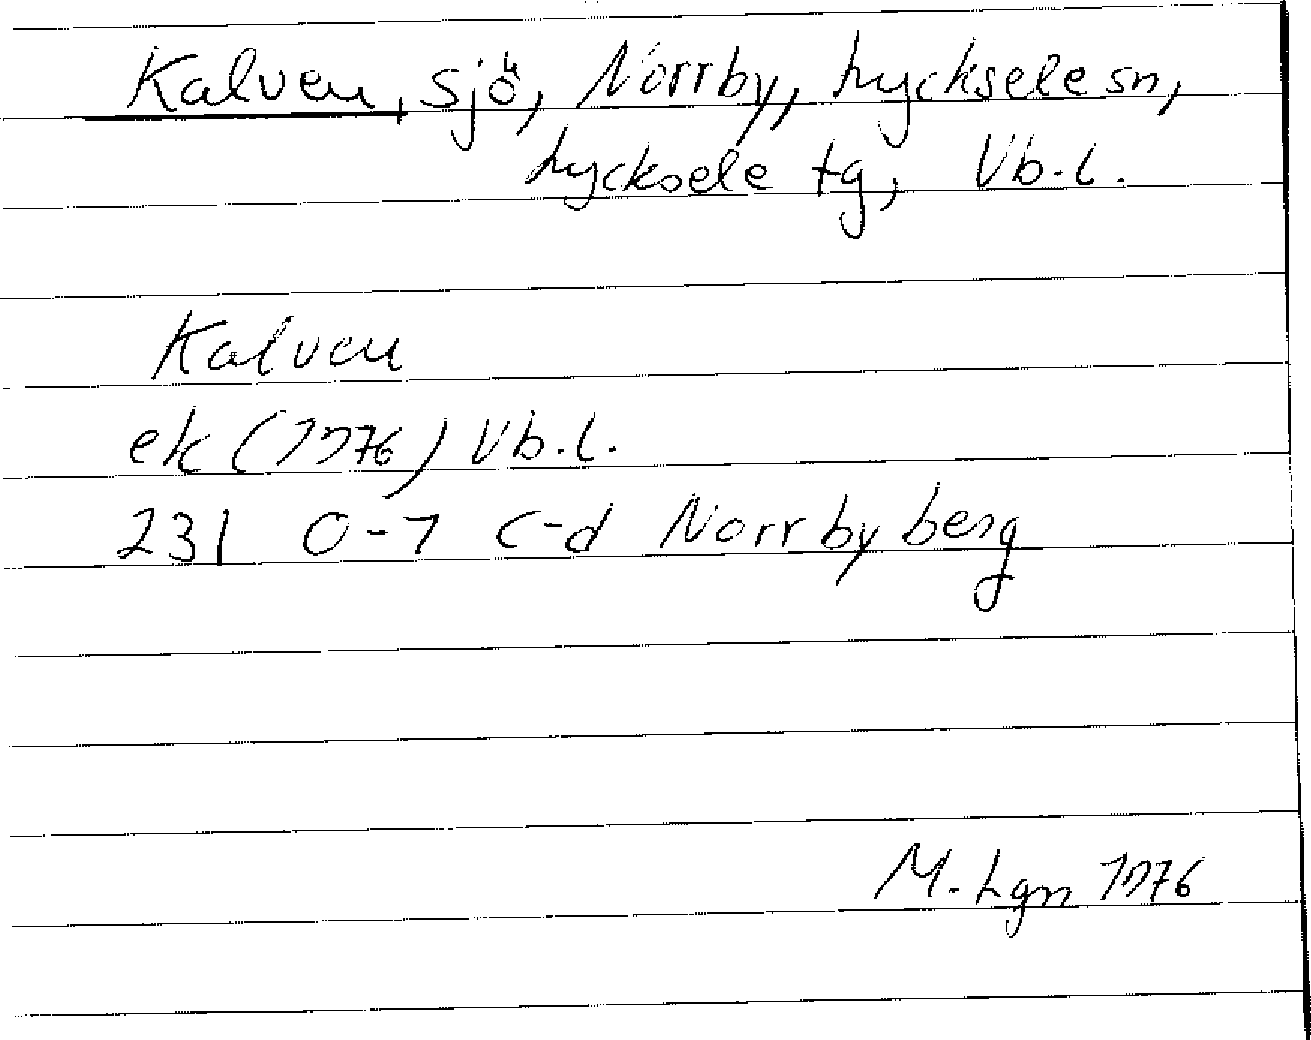 Kalven, sjö, Norrby, Lycksele sn,
Lycksele tg, Vb.l.
Kalven
ek (1976) Vb.l.
231 0-1 c-d Norrbyberg
M. Lgn 1976